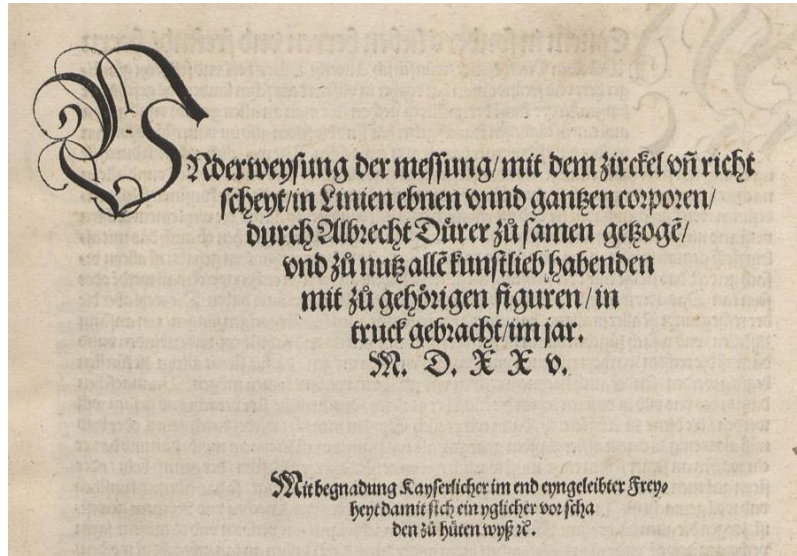 VNderweysung der messung/ mit dem zirckel vn̄ richt
scheyt/ in Linien ebnen vnnd gantzen corporen/
durch Albrecht Dürer zů samen getzogē/
vnd zů nutz allē kunstlieb habenden
mit zů gehörigen figuren/ in
truck gebracht/ im jar.
M. D. X X v.
Mit begnadung Kayserlicher im end eyngeleibter Frey⸗
heyt damit sich ein yglicher vor scha
den zů hüten wyß ꝛc̄.